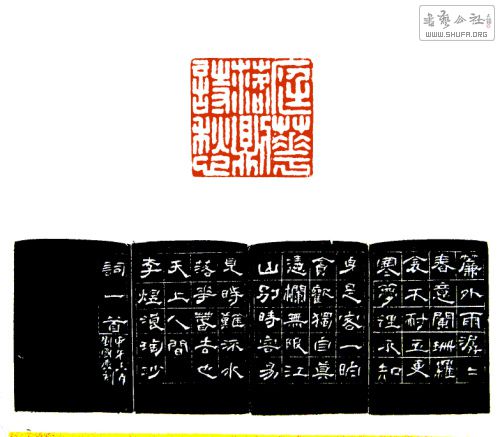 书艺公社
WWW.SHUFA.ORG
簾外雨潺〻
春意闌珊羅
衾不耐五更
寒夢裡不知
身是客一晌
貪歡獨自莫
憑欄無限江
山別時容易
見時難流水
落華萅去也
天上人間
李煜浪淘沙
詞一首